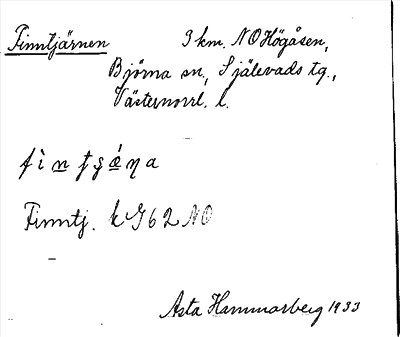 Finntjärnen 3 km. NO Högåsen,
Björna sn., Själevads tg.,
Västernorrl. l.
Finntj. k G 62 NO
Asta Hammarberg 1933